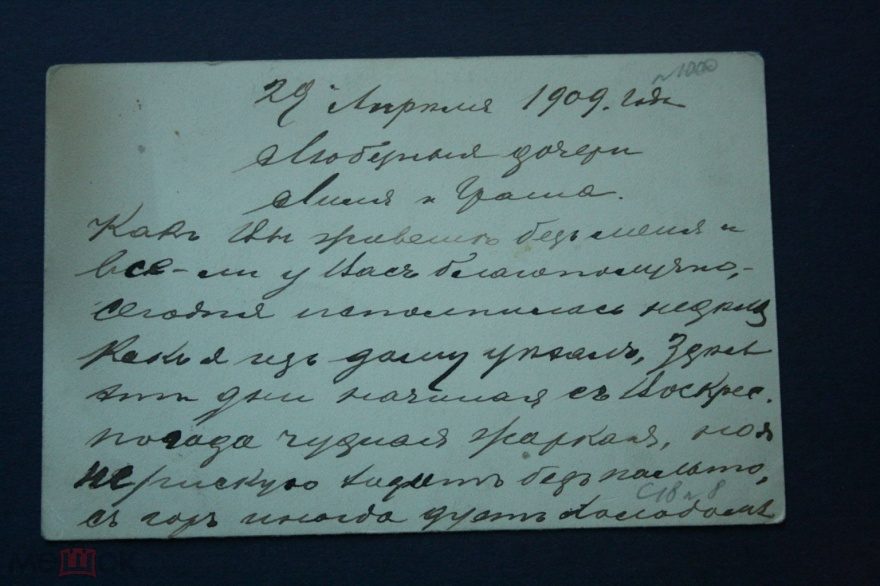 №1000
29 Апреля 1909. года
Любезныя дочери
Лиля и Граша.
Какъ Вы живете безъ меня и
все-ли у Васъ благополучно,-
сегодня исполнилась неделя
какъ я изъ дому уехалъ, Здесь
эти дни начиная съ Воскрес.
погода чудная жаркая, но я
не рискую ходить безъ пальто,
съ горъ иногда дуетъ холодомъ
С18 № 8
МЕШОК